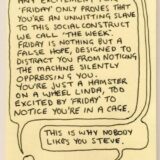 ANY EXCITEMENT FOR
'FRIDAY' ONLY PROVES THAT
YOU'RE AN UNWITTING SLAVE
TO THIS SOCIAL CONSTRUCT
WE CALL 'THE WEEK'.
FRIDAY IS NOTHING BUT A
FALSE HOPE, DESIGNED TO
DISTRACT YOU FROM NOTICING
THE MACHINE SILENTLY
OPPRESSING YOU.
YOU'RE JUST A HAMSTER
ON A WHEEL LINDA, TOO
EXCITED BY FRIDAY TO
NOTICE YOU'RE IN A CAGE.
THIS IS WHY NOBODY
LIKES YOU STEVE.